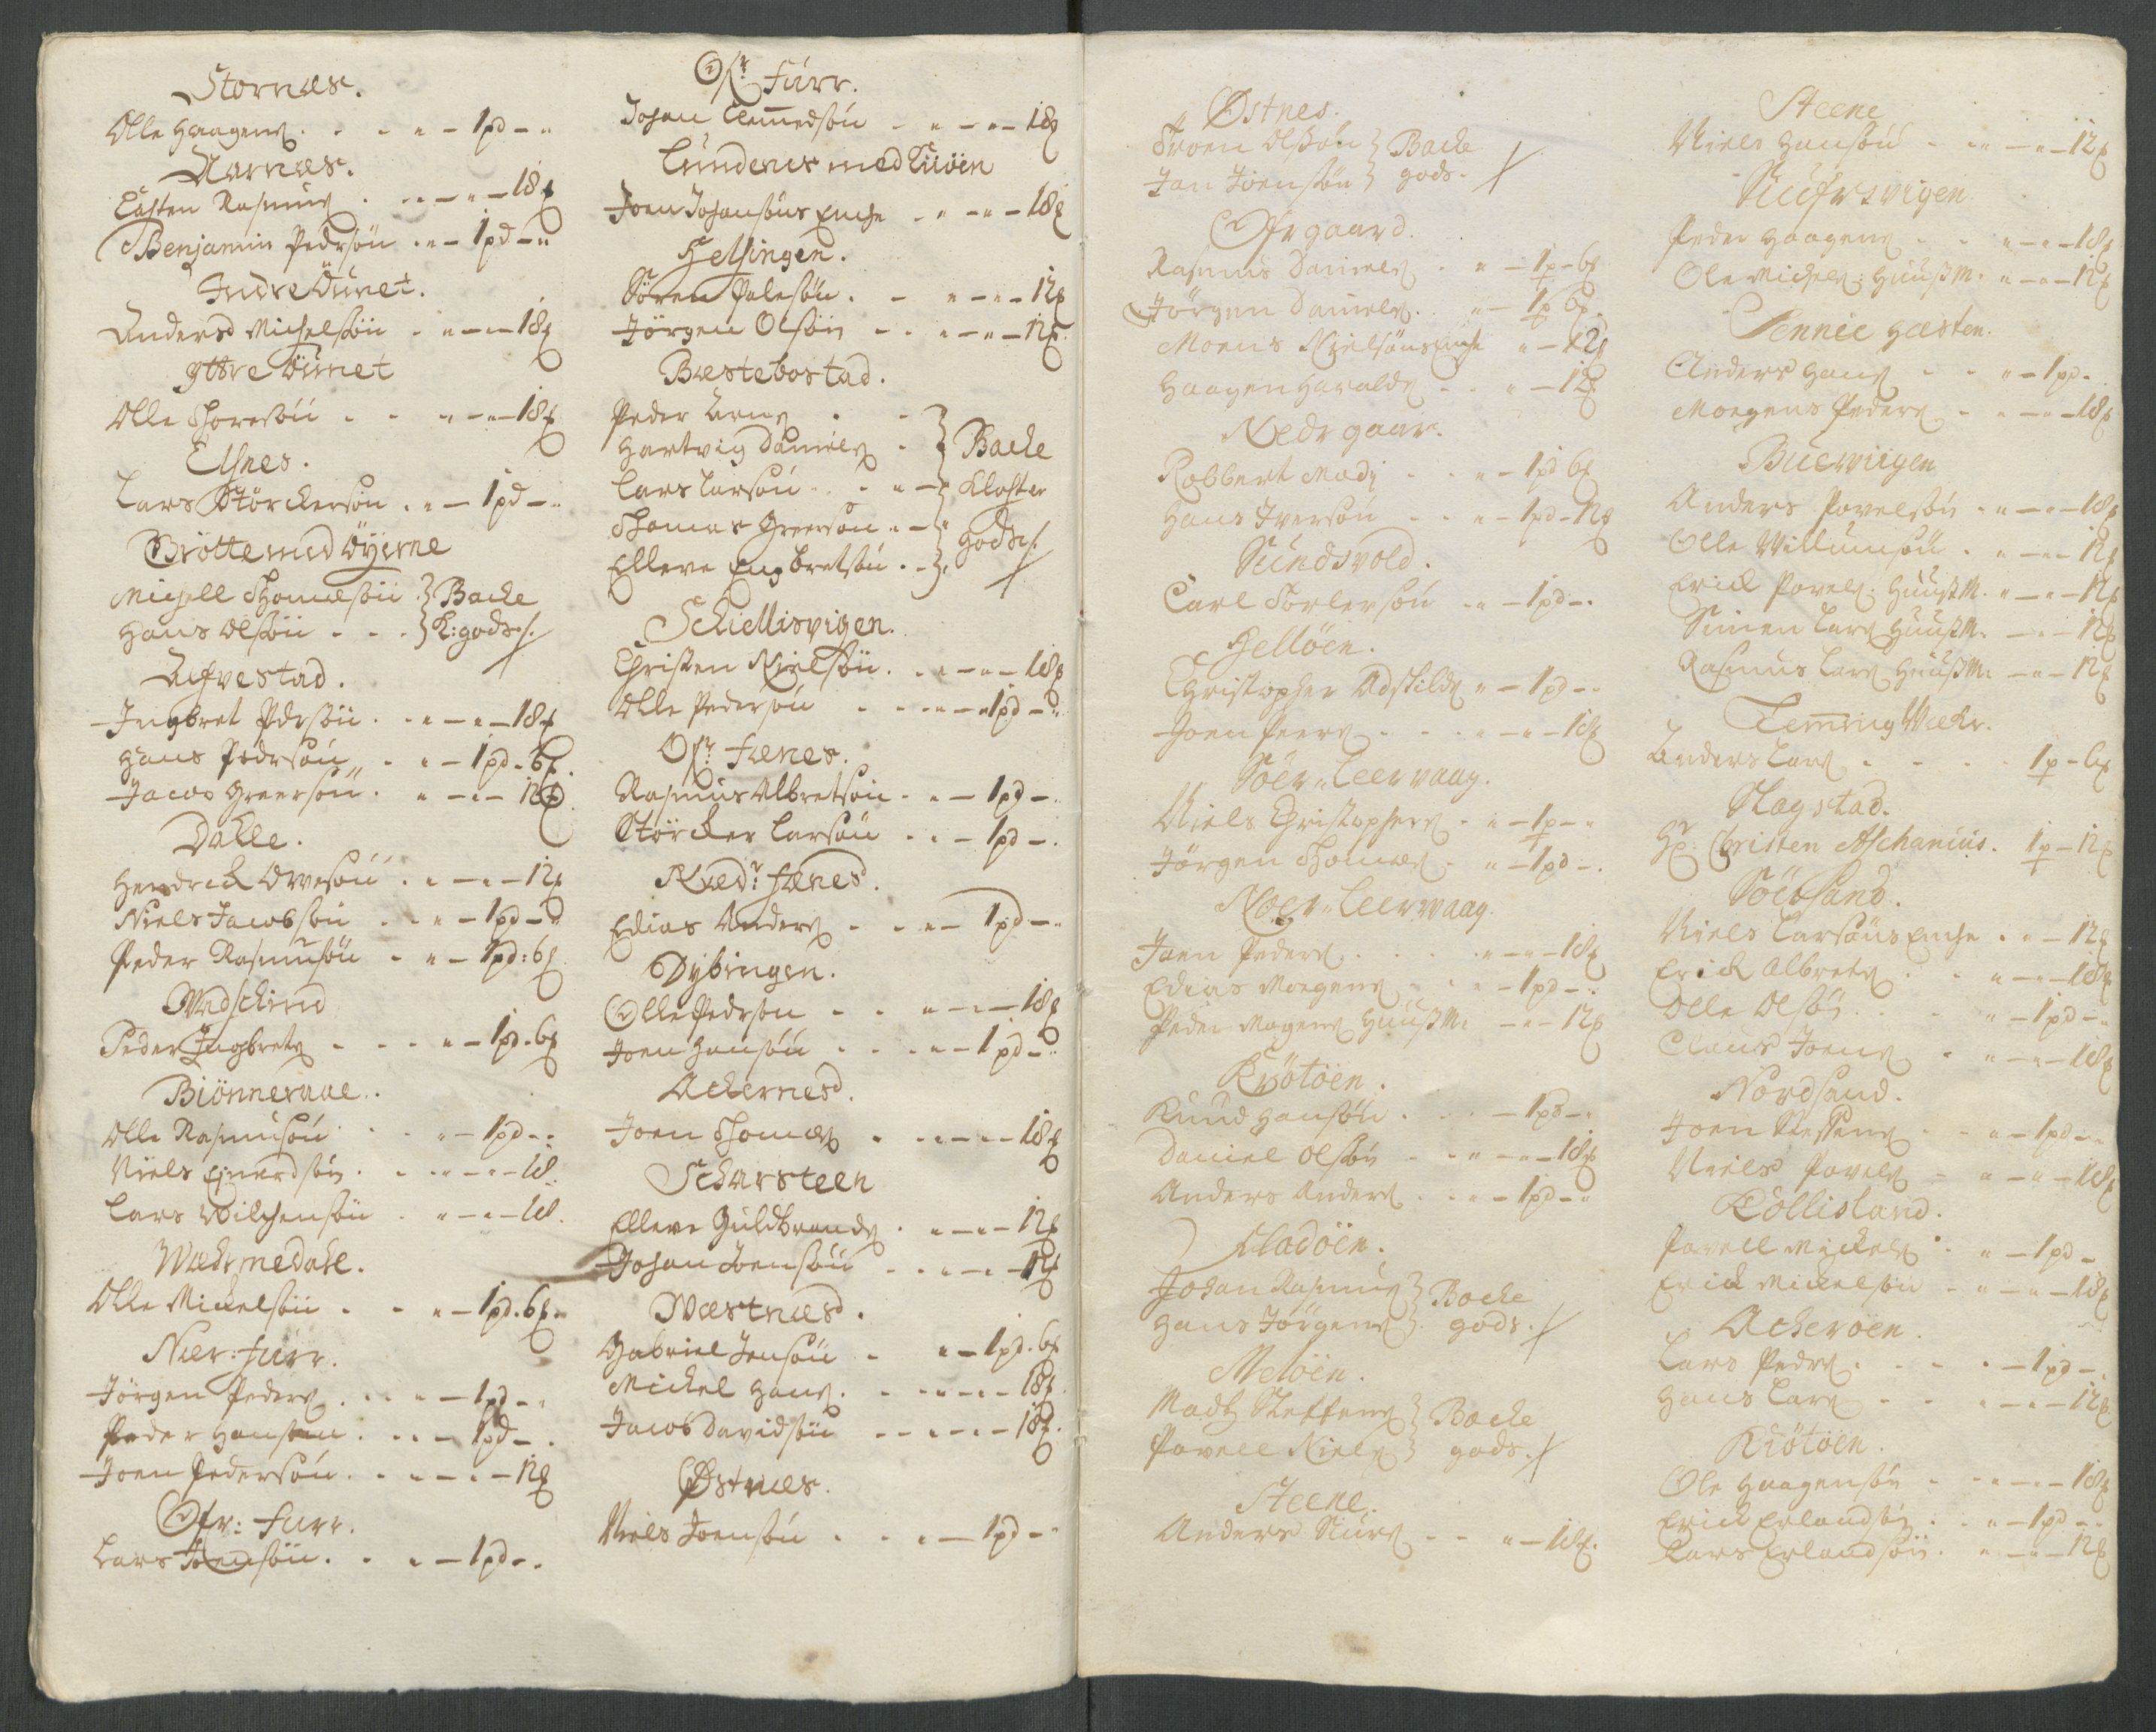 Stornæs.
Olle Haagens. . - „ „ - 1 pd - „
Aarnæs.
Casten Rasmus . „ - „ - 18 ℔
Benjamin Pedersøn . „ - 1 pd - „
Indre Ouret.
Anders Michelsøn - „ - „ - 18 ℔
Yttre Ouret
Olle Thoresøn - - „ - „ - 18 ℔
Elsnes.
Lars Størckersøn . „ - 1 pd - „
Brötte med Öyerne
Michell Thomesøn } Backe
Hans Olsøn - - . } K: gods /.
Aufvestad.
Ingbret Pedersøn . „ - „ - 18 ℔
Hans Pedersøn „ - „ - 1 pd - 6 ℔
Jacob Greersøn . „ - „ - 12 ℔
Dalle.
Hendrick Ovesøn . „ - „ - 12 ℔
Niels Jacobsøn - . „ - 1 pd - „
Peder Rasmusøn - „ - 1 pd : 6 ℔
Wadschind
Peder Ingbrets - - „ - 1 pd . 6 ℔
Biönneraae.
Olle Rasmusøn - „ - 1 pd - .
Niels Ejnersøn . - „ - „ - 18 .
Lars Wilchensøn - „ - „ - 18 .
Wæhmedahl.
Olle Mickelsøn . - „ - 1 pd . 6 ℔ .
Nær: furr.
Jörgen Peders . . „ - 1 pd - „
Peder Hansøn . . „ - 1 pd - .
Joen Pedersøn . . „ - „ - 12 ℔
Ofr: furr.
Lars Jensøn . . „ - 1 pd - .
Ofr: furr.
Johan Clemedsøn - „ - „ - 18 ℔
Lundenes med Liiöen
Joen Johansøns Enche . „ - „ - 18 ℔
Helsingen.
Sören Palesøn . - „ - „ - 12 ℔
Jörgen Olsøn - - „ - „ - 12 ℔
Bæstebostad.
Peder Arns . -
Hartvig Daniels - } Backe
Lars Larsøn . . „ - } Kloster
Thomas Greersøn . „ - } gods /.
Elleve Engbretsøn . - }
Schiellisvigen.
Christen Nielsøn . . „ - „ - 18 ℔
Olle Pedersøn . - „ - „ 1 pd - „
Ofr: fænes.
Rasmus Albretsøn - . „ - 1 pd - .
Störcker Larsøn . . „ - 1 pd - .
Nædr: fænes.
Edias Anders . - „ - 1 pd - „
Dybingen.
Olle Pedersøn - - „ - „ - 18 ℔
Joen Hansøn . - „ - 1 pd - „
Ackernes.
Joen Thomes . „ - „ - 18 ℔
Scharsteen
Elleve Guldbrands . „ - „ - 12 ℔
Johan Joensøn . . „ - „ - 12 ℔
Wæstnæs.
Gabriel Jensøn - „ - 1 pd . 6 ℔
Mickel Hans . - „ - „ - 18 ℔
Jacob Davidsøn - „ - „ - 18 ℔
Östnæs.
Niels Joensøn . - . „ - 1 pd - „
Östnes.
Troen Olsøn } Backe
Jan Joensøn } gods . /
Ofr gaard.
Rasmus Daniels - „ - 1 p - 6 ℔
Jörgen Daniels . „ - 1 p 6 ℔
Moens Nielsøns Enche „ - 12 ℔
Haagen Haralds - - „ - 12 ℔
Nedr gaar.
Robbert Mads - - „ - 1 pd 6 ℔
Hans Iversøn - - „ - 1 pd - 12 ℔
Sundsvold.
Carl Torlersøn - „ - 1 pd - .
Jelløen.
Christopher Adskilds „ - 1 pd - .
Joen Peers - - . „ - „ - 18 ℔
Söer „ Leervaag.
Niels Christophers - „ - 1 p - „
Jörgen Thomes - „ - 1 pd - .
Noer „ Leervaag.
Joen Peders . . . „ - „ - 18 ℔
Edias Moegens . - „ - 1 pd - „
Peder Mogens Huusm: - „ - 12 ℔
Krötöen.
Knud Hansøn . - - 1 pd - „
Daniel Olsøn - - „ - „ - 18 ℔
Anders Anders . . „ - 1 pd - „
Fladöen.
Johan Rasmus } Backe
Hans Jörgens } gods . /
Melöen.
Mads Steffens } Backe
Povell Niels } gods . /
Steene.
Anders Siurs - - „ - 18 ℔ .
Steene
Niels Hansøn - „ - „ - 12 ℔
Peder Haagens - - „ - „ - 18 ℔
Ole Michels : Huusm: „ - „ - 12 ℔
Tennie Hæsten.
Anders Hans - - „ - 1 pd - .
Moegens Peders - „ - „ - 18 ℔
Buevigen
Anders Povelsøn . „ - „ - 18 ℔
Olle Willumsøn . „ - „ - 12 ℔
Erick Povels : Huusm. „ - „ - 12 ℔
Simen Lars Huusm: - „ - 12 ℔
Rasmus Lars Huusm: - „ - 12 ℔
Lemring Wæhr.
Anders Lars . - - . 1 p - 6 ℔
Slagstad.
Hr: Christen Aschanius . 1 p - 12 ℔
Söebsand.
Niels Larsøns Enche . „ - 12 ℔
Erick Albrets . - „ - „ - 18 ℔
Olle Olsøn . - „ - 1 pd - „
Claus Joens . „ - „ - 18 ℔
Nordsand.
Joen Steffens - - „ - 1 pd - „
Niels Povels - „ - „ - 18 ℔
Kollisland.
Povell Mickels . „ - 1 pd -
Erick Mickelsøn - „ - „ - 18 ℔
Ackeröen.
Lars Peders . - - . - 1 pd -
Hans Lars - - „ - „ - 12 ℔
Krötöen.
Ole Haagensøn - - „ - „ - 18 ℔
Erick Erlandsøn . . „ - 1 pd - „
Lars Erlandsøn . „ - „ - 12 ℔